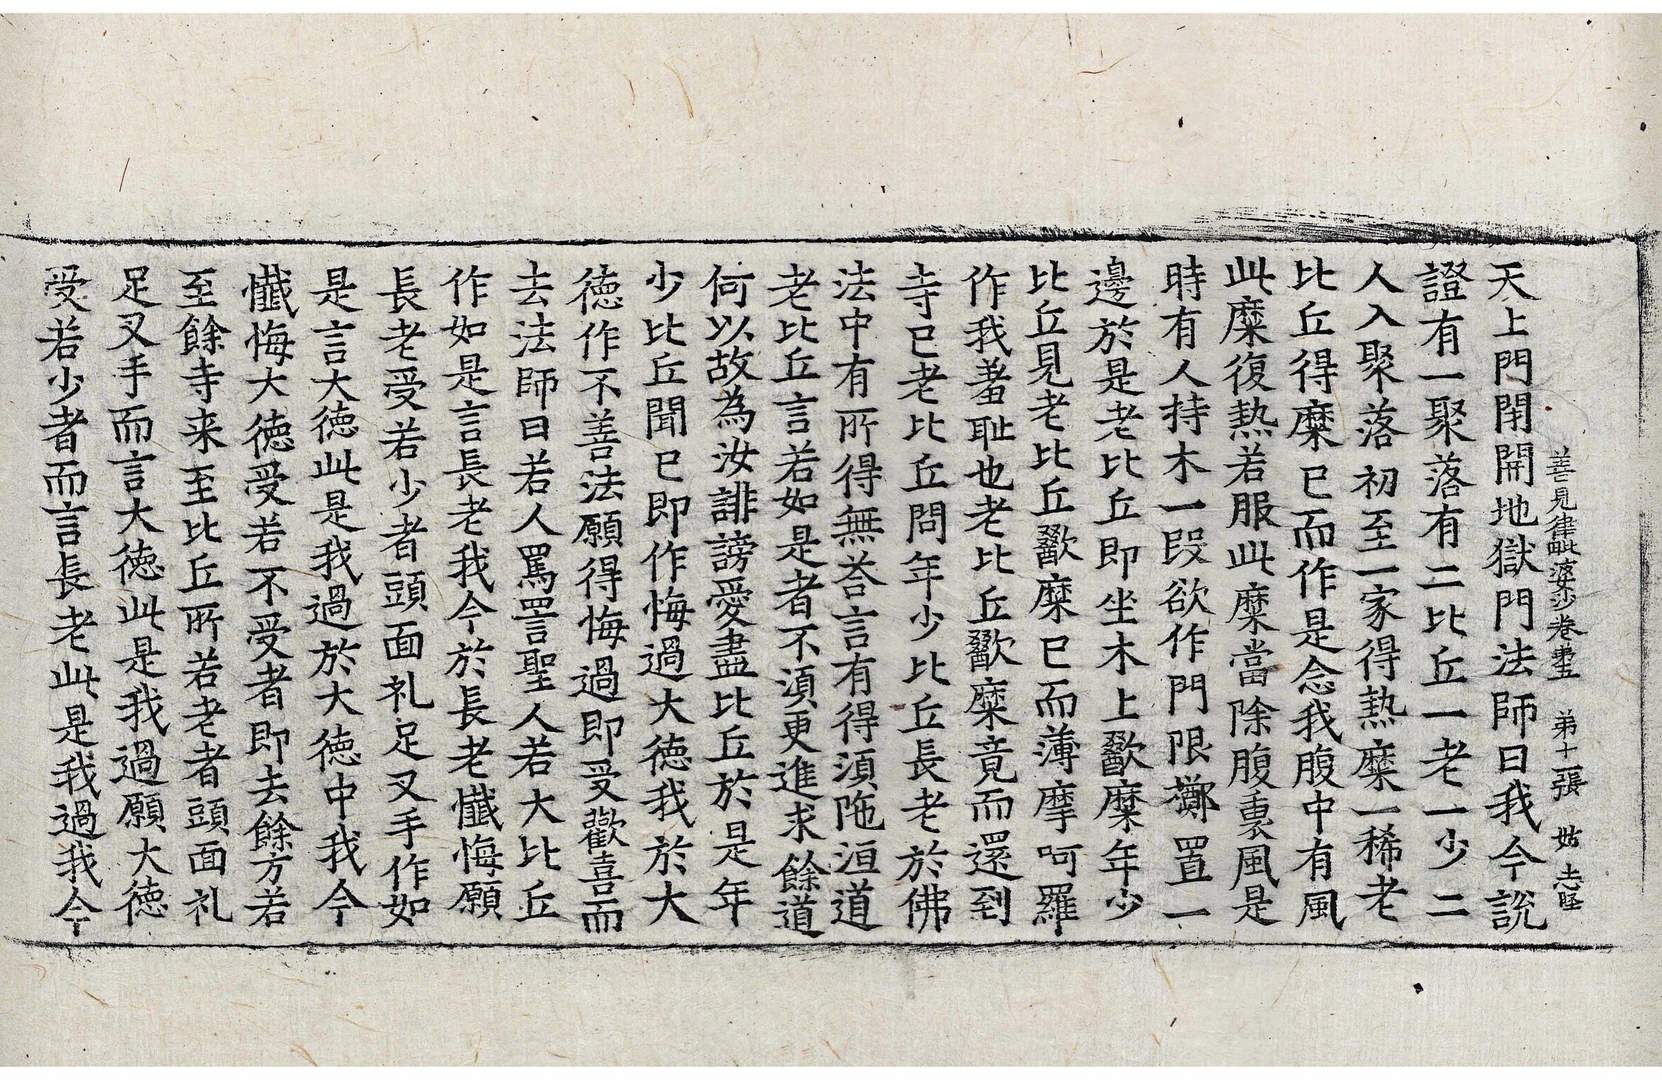 善見律毗婆沙卷第五　第十一張　姑
天上門閉開地獄門法師曰我今說
證有一聚落有二比丘一老一少二
人入聚落初至一家得熱糜一稀老
比丘得糜已而作是念我腹中有風
此糜復熱若服此糜當除腹裏風是
時有人持木一段欲作門限擲置一
邊於是老比丘即坐木上歠糜年少
比丘見老比丘歠糜已而薄摩呵羅
作我羞耻也老比丘歠糜竟而還到
寺已老比丘問年少比丘長老於佛
法中有所得無荅言有得須陁洹道
老比丘言若如是者不須更進求餘道
何以故為汝誹謗愛盡比丘於是年
少比丘聞已即作悔過大德我於大
德作不善法願得悔過即受歡喜而
去法師曰若人罵詈聖人若大比丘
作如是言長老我今於長老懺悔願
長老受若少者頭面礼足叉手作如
是言大德此是我過於大德中我今
懺悔大德受若不受者即去餘方若
至餘寺来至比丘所若老者頭面礼
足叉手而言大德此是我過願大德
受若少者而言長老此是我過我今